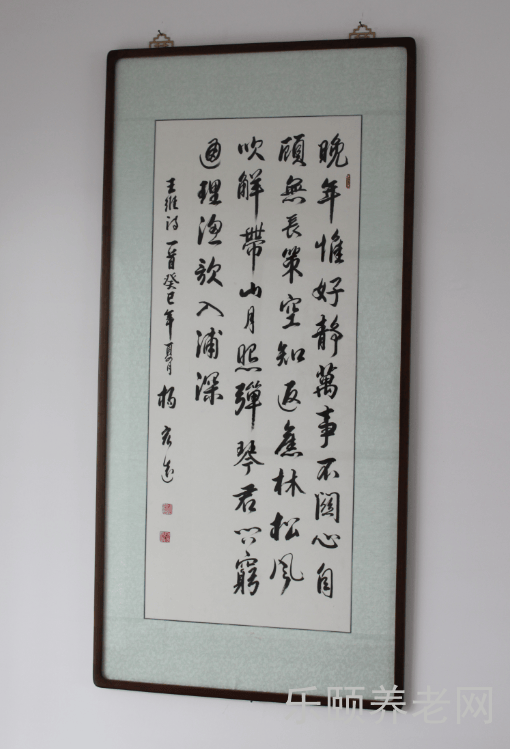 晚年惟好静萬事不關心自
顧無長策空知返舊林松風
吹解帶山月照彈琴君问窮
通理渔歌入浦深
王維詩一首癸巳年夏月 楊
乐颐养老网